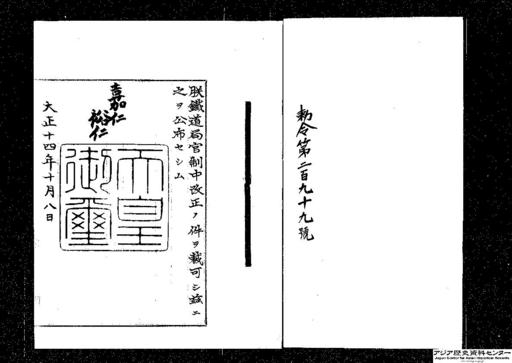 勅令第二百九十九號
朕鐵道局官制中改正ノ件ヲ裁可シ茲ニ
之ヲ公布セシム
嘉仁
裕仁
天皇
御璽
大正十四年十月八日
アジア歴史資料センター
Japan Center for Asian Historical Records